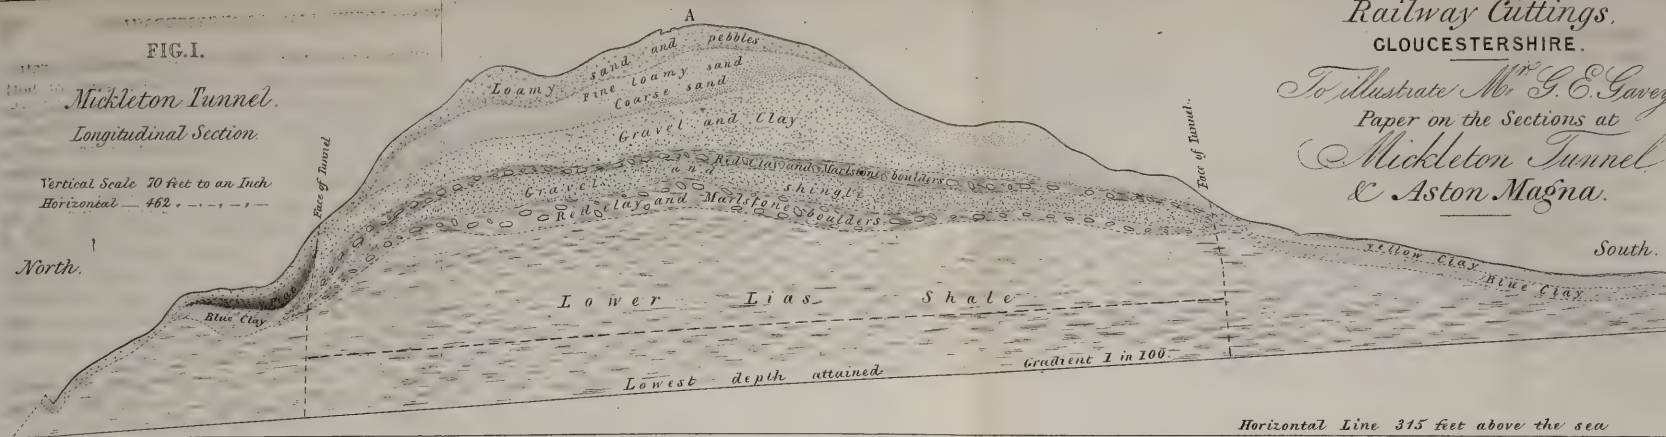 FIG.1.
Mickleton Tunnel.
Longitudinal Section.
Vertical Scale 70 feet to an Inch
Horizontal — 462 „ — „ — „ —
North.
Railway Cuttings,
GLOUCESTERSHIRE.
To illustrate Mr G. E. Gavey
Paper on the Sections at
Mickleton Tunnel
& Aston Magna.
South.
A
Loamy sand and pebbles
Fine loamy sand
Coarse sand
Gravel and Clay
Red Clay and Marlstone boulders
Gravel and shingle
Red clay and Marlstone boulders
Face of Tunnel
Face of Tunnel.
Blue Clay
Yellow Clay
Blue Clay
Lower Lias Shale
Lowest depth attained
Gradient 1 in 100.
Horizontal Line 315 feet above the sea